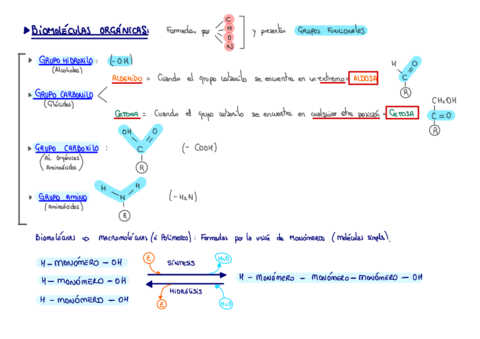 BIOMOLÉCULAS ORGÁNICAS: Formadas por C H O N y presentan GRUPOS FUNCIONALES
GRUPO HIDROXILO: (-OH)
(Alcoholes)
ALDEHÍDO = Cuando el grupo carbonilo se encuentra en un extremo = ALDOSA
H C = O
R
GRUPO CARBONILO
(Glúcidos)
CETONA = Cuando el grupo carbonilo se encuentra en cualquier otra posición = CETOSA
CH₂OH
C = O
R
GRUPO CARBOXILO: (- COOH)
(Ác. Orgánicos
Aminoácidos)
OH O
C
R
GRUPO AMINO (-H₂N)
(Aminoácidos)
H H
N
R
Biomoléculas ⇒ MACROMOLÉCULAS (ó Polímeros): Formadas por la unión de MONÓMEROS (moléculas simples).
H - MONÓMERO - OH
H - MONÓMERO - OH
H - MONÓMERO - OH
E H₂O
SÍNTESIS
HIDRÓLISIS
E H₂O
H - MONÓMERO - MONÓMERO - MONÓMERO - OH